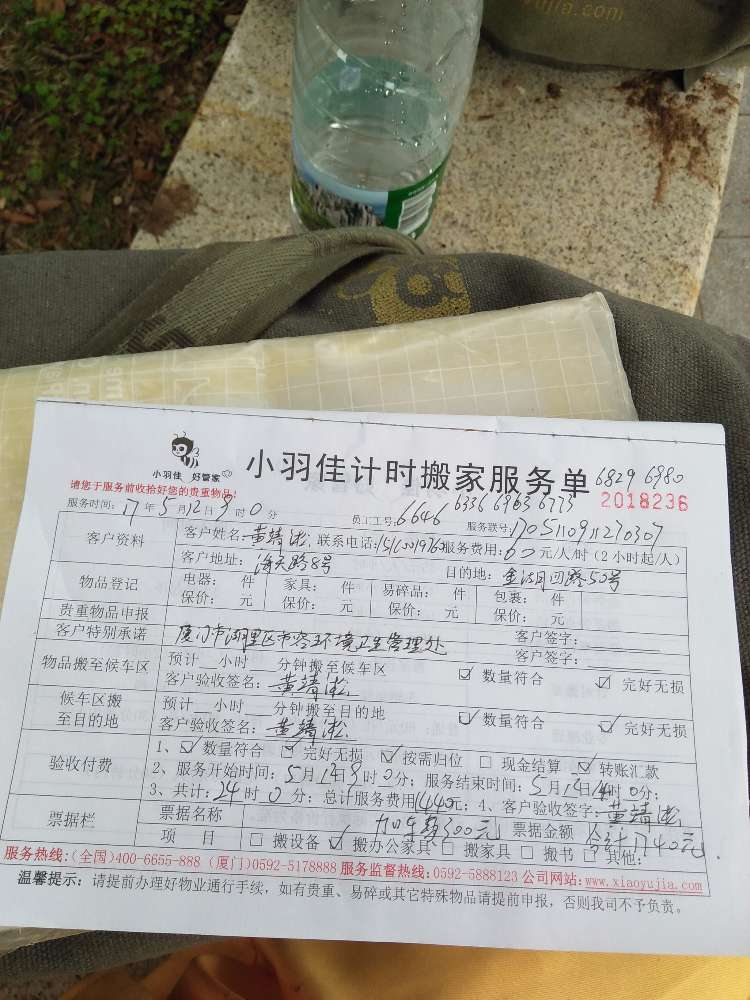 yujia.com
小羽佳 好管家
小羽佳计时搬家服务单
6829 6980
请您于服务前收拾好您的贵重物品!
6336 6963 6773
2018236
服务时间: 17年5月12日9时0分 员工工号: 6646 服务联号: 1705110911270307
客户资料 客户姓名: 黄靖淞 联系电话: 服务费用: 60元/人/时 (2小时起/人)
客户地址: 海天路8号 目的地: 金湖四里50号
物品登记 电器: 件 家具: 件 易碎品: 件 包裹: 件
保价: 元 保价: 元 保价: 元 保价: 元
贵重物品申报 客户签字:
客户特别承诺 厦门市湖里区市容环境卫生管理处 客户签字:
物品搬至候车区 预计 小时 分钟搬至候车区 ☑ 数量符合 ☑ 完好无损
客户验收签名: 黄靖淞
候车区搬至目的地 预计 小时 分钟搬至目的地 ☑ 数量符合 ☑ 完好无损
客户验收签名: 黄靖淞
验收付费 1、☑ 数量符合 ☑ 完好无损 ☑ 按需归位 □ 现金结算 ☑ 转账汇款
2、服务开始时间: 5月12日9时0分; 服务结束时间: 5月12日14时0分;
3、共计: 24时0分; 总计服务费用1440元; 4、客户验收签字: 黄靖淞
票据栏 票据名称 加车费300元 票据金额 合计1740元.
项 目 □ 搬设备 ☑ 搬办公家具 □ 搬家具 □ 搬书 □ 其他:
服务热线: (全国)400-6655-888 (厦门)0592-5178888 服务监督热线: 0592-5888123 公司网站: www.xiaoyujia.com
温馨提示: 请提前办理好物业通行手续, 如有贵重、易碎或其它特殊物品请提前申报, 否则我司不予负责。